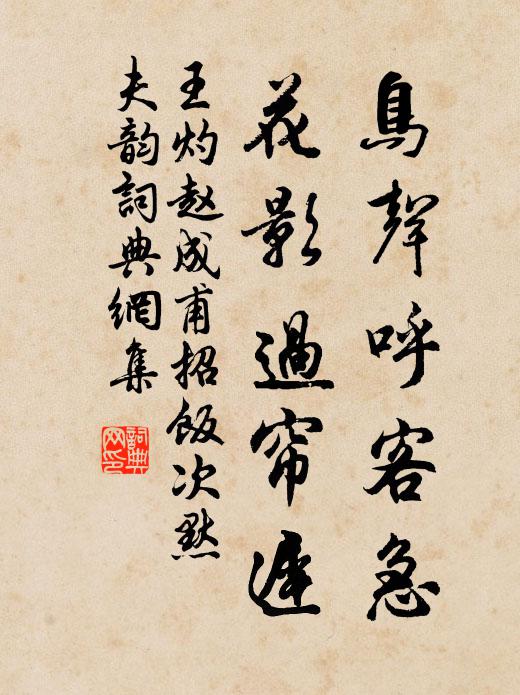 鳥聲呼客急
花影過帘遲
王灼赵成甫招飯次默
夫韵詞典網集
詞典网印